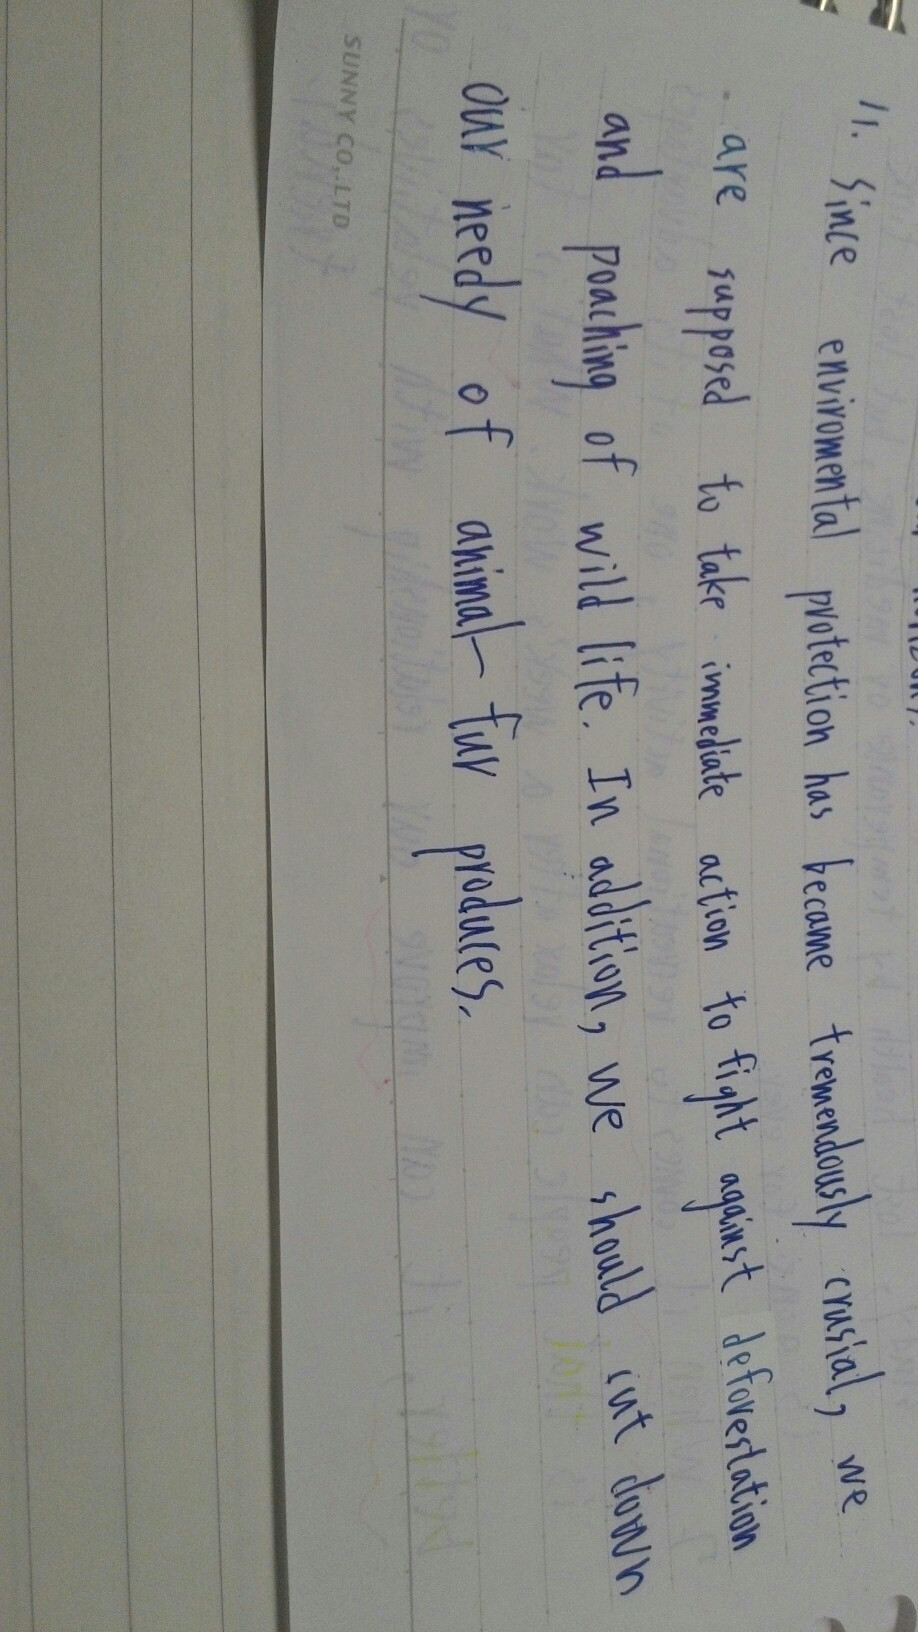 11. Since enviromental protection has became tremendously crusial, we
are supposed to take immediate action to fight against deforestation
and poaching of wild life. In addition, we should cut down
our needy of animal-fur produces.
SUNNY CO,.LTD